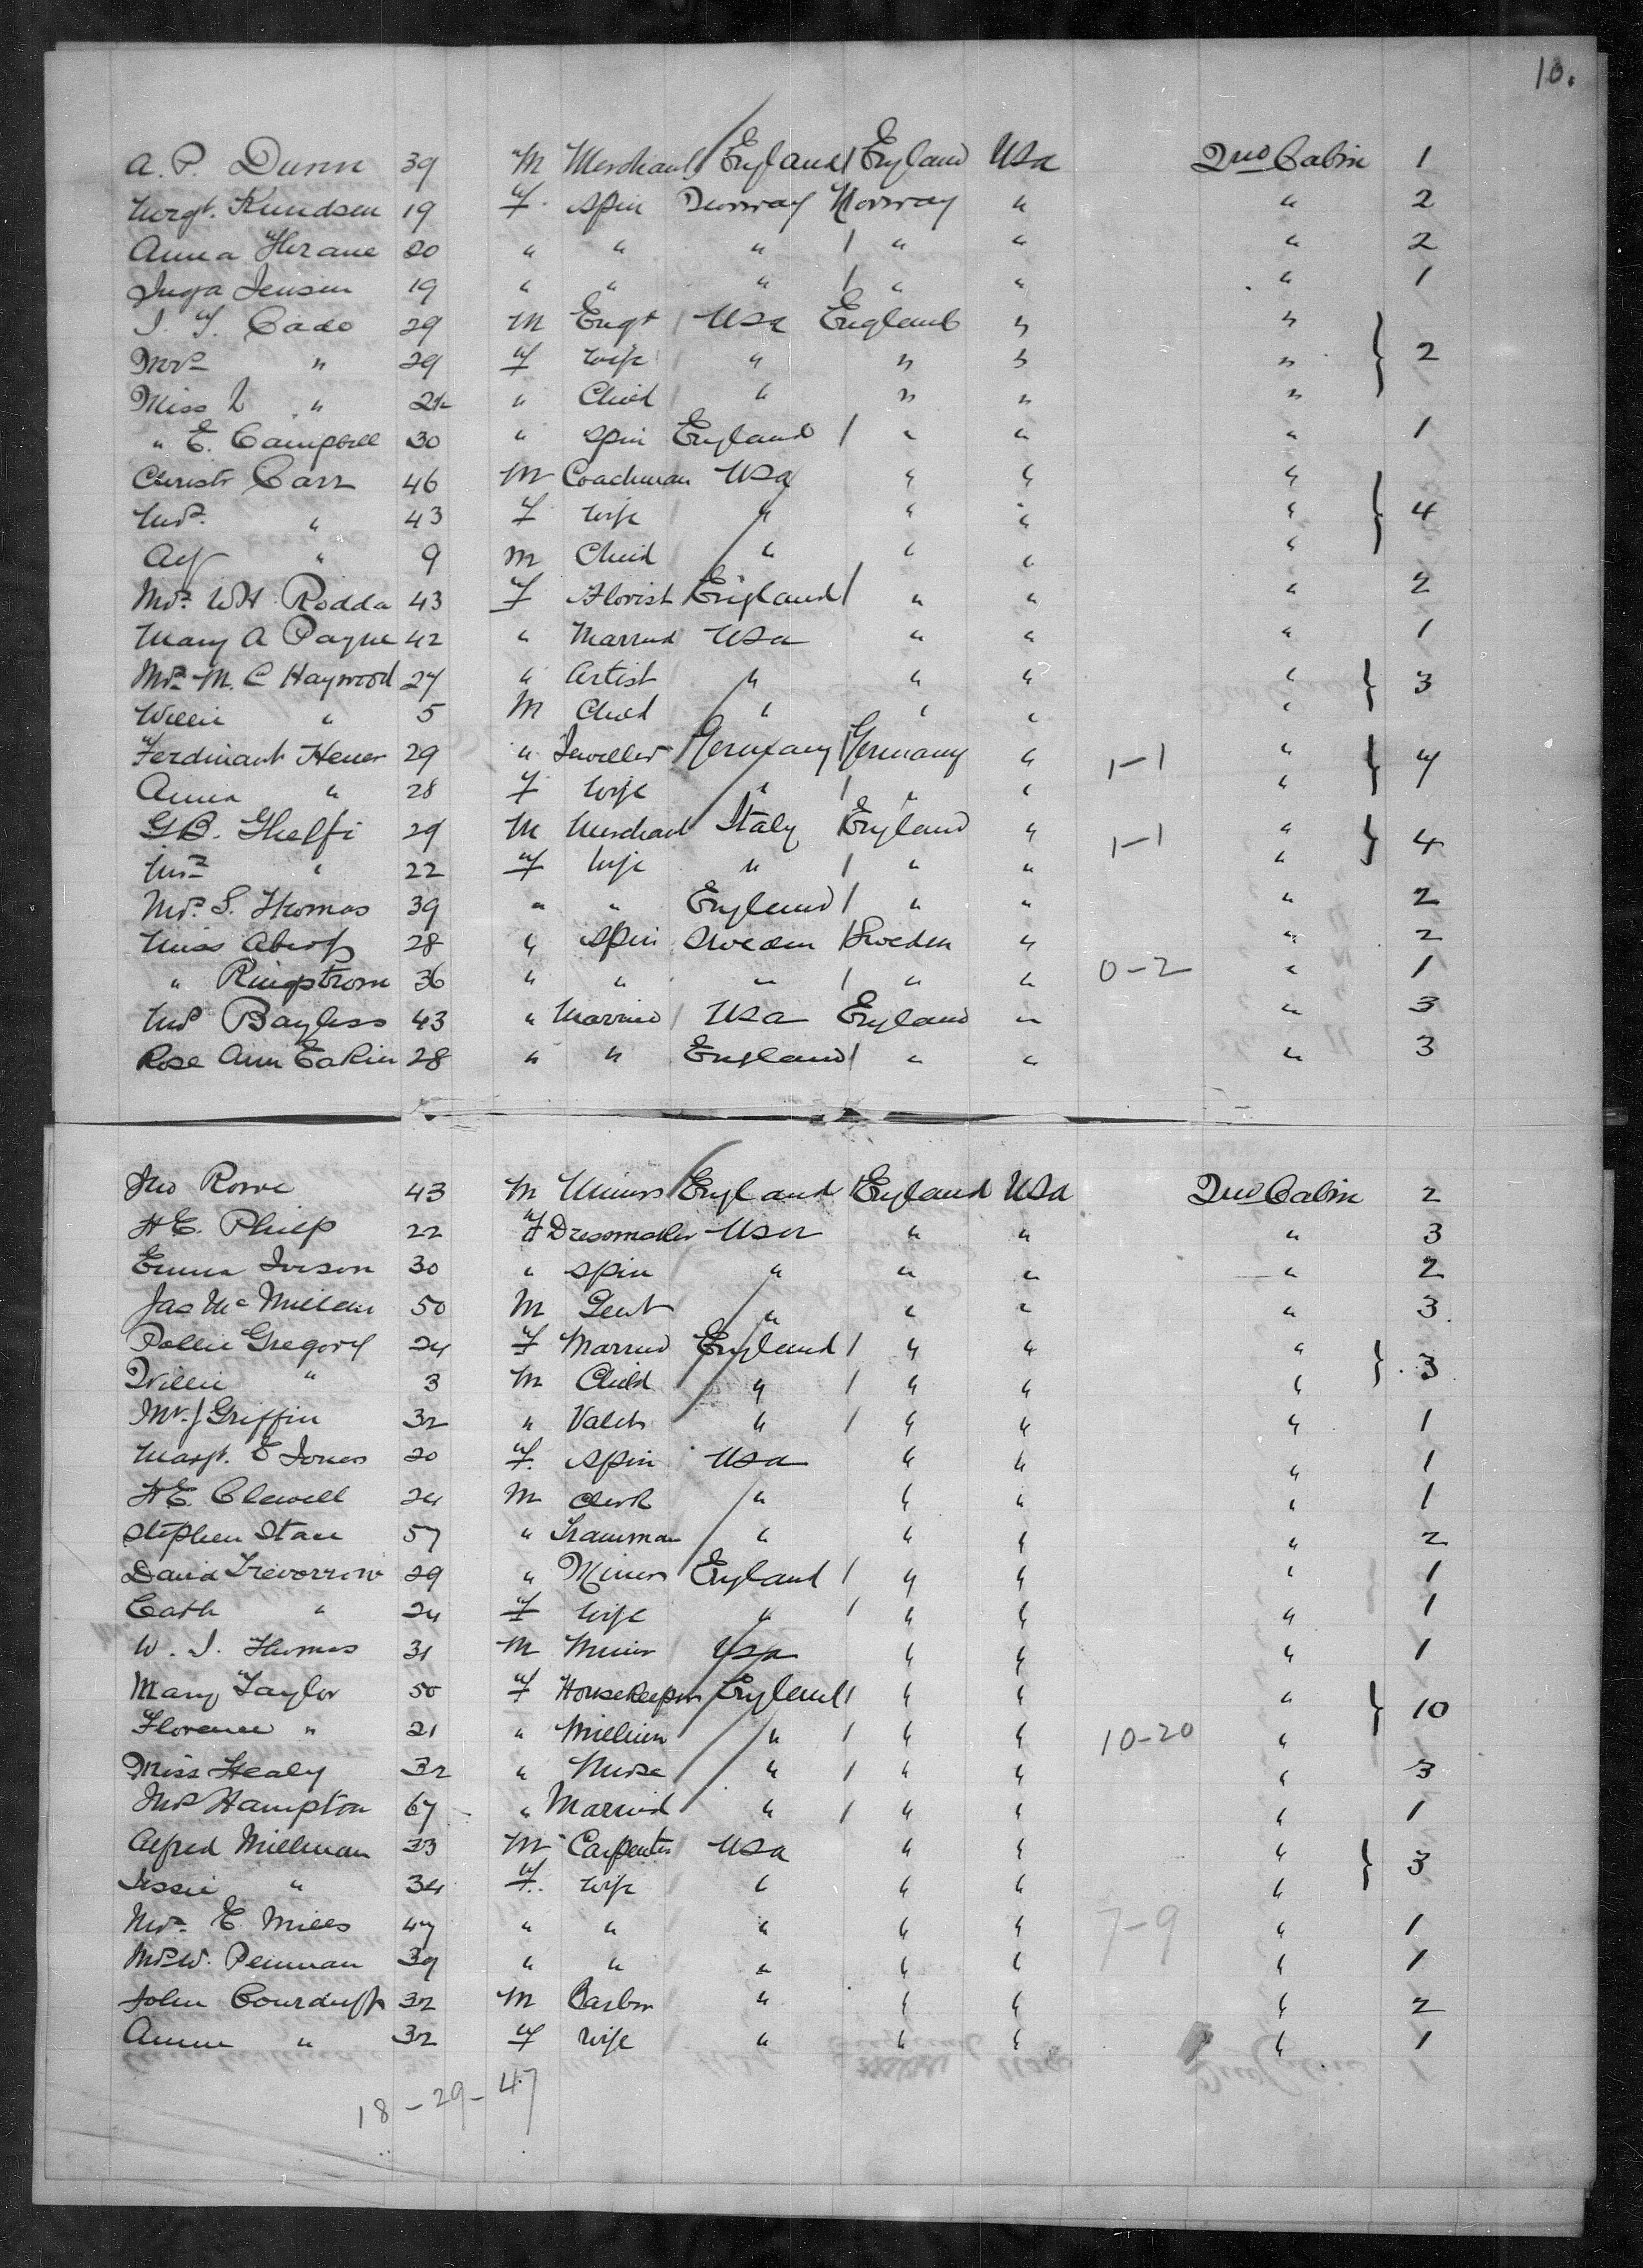 10.
A. P. Dunn 39 M Merchant England England USa 2nd Cabin 1
Margt. Knudsen 19 F. Spin Norway Norway " " 2
Anna Horane 20 " " " " " " 2
Inga Jensen 19 " " " " " " 1
J. T. Cado 29 M Engr USa England " "
Mrs " 29 F wife " " " " 2
Miss L " 2½ " Child " " " "
" E. Campbell 30 " Spin England " " " 1
Christr Carr 46 M Coachman USa " " "
Mrs. " 43 F Wife " " " " 4
Alf " 9 M Child " " " "
Mrs. WH. Rodda 43 F Florist England " " " 2
Mary A Payne 42 " Married USa " " " 1
Mrs M. C Haywood 27 " Artist " " " " 3
Willie " 5 M Child " " " "
Ferdinant Heuer 29 " Jeweller Germany Germany " 1-1 " 4
Anna " 28 F Wife " " " "
G.B. Ghelfi 29 M Merchant Italy England " 1-1 " 4
Mrs " 22 F Wife " " " "
Mrs. S. Thomas 39 " " England " " " 2
Miss 28 " Spin Sweden Sweden " " 2
" Ringstrom 36 " " " " " 0-2 " 1
Mrs Bayliss 43 " Married USa England " " 3
Rose Ann Eakin 28 " " England " " " 3
Jno Rowe 43 M Miner England England USa 2nd Cabin 2
H E. Philp 22 F Dressmaker USa " " " 3
Emma Iveson 30 " Spin " " " " 2
Jas Mc Millan 50 M Gent " " " " 3.
Pollie Gregory 24 F Married England " " " 3
Willie " 3 M Child " " " "
Mr. J Griffin 32 " Valet " " " " 1
Margt. E Jones 20 F. Spin USa " " " 1
H E. Clewell 24 M Clerk " " " " 1
Stephen Stace 57 " " " " " 2
David Trevorrow 29 " Miner England " " " 1
Cath " 24 F Wife " " " " 1
W. J. Thomas 31 M Miner USa " " " 1
Mary Taylor 50 F Housekeeper England " " " 10
Florence " 21 " Milliner " " " 10-20 "
Miss Healy 32 " Nurse " " " " 3
Mrs Hampton 67 " Married " " " " 1
Alfred Millman 33 M Carpenter USa " " " 3
Jessie " 34 F. Wife " " " "
Mrs. E. Mills 47 " " " " " 7-9 " 1
Mrs W. Penman 39 " " " " " " 1
John Courduff 32 M Barber " " " " 2
Annie " 32 F Wife " " " " 1
18-29-47